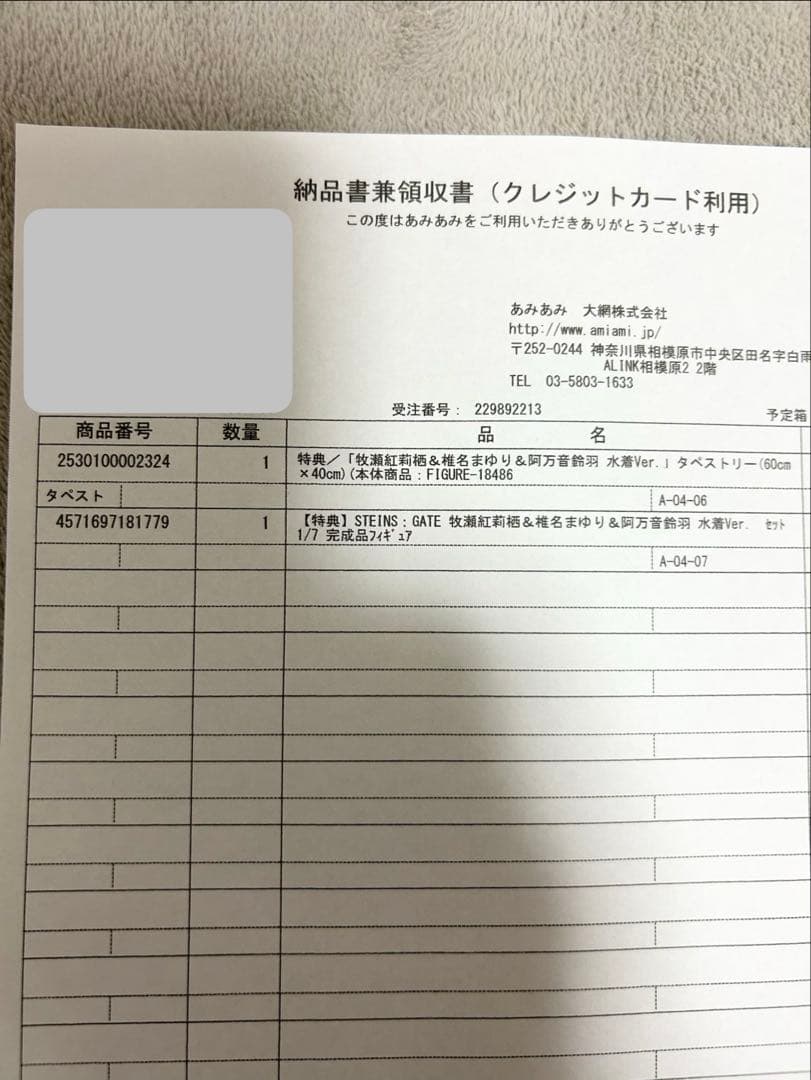 納品書兼領収書（クレジットカード利用）
この度はあみあみをご利用いただきありがとうございます
あみあみ　大網株式会社
http://www.amiami.jp/
〒252-0244 神奈川県相模原市中央区田名字白雨
ALINK相模原2 2階
TEL　03-5803-1633
受注番号： 229892213
予定箱
商品番号 数量 品名
2530100002324 1 特典／「牧瀬紅莉栖＆椎名まゆり＆阿万音鈴羽 水着Ver.」タペストリー(60cm
×40cm)(本体商品：FIGURE-18486
タペスト A-04-06
4571697181779 1 【特典】STEINS：GATE 牧瀬紅莉栖＆椎名まゆり＆阿万音鈴羽 水着Ver.　ｾｯﾄ
1/7 完成品ﾌｨｷﾞｭｱ
A-04-07